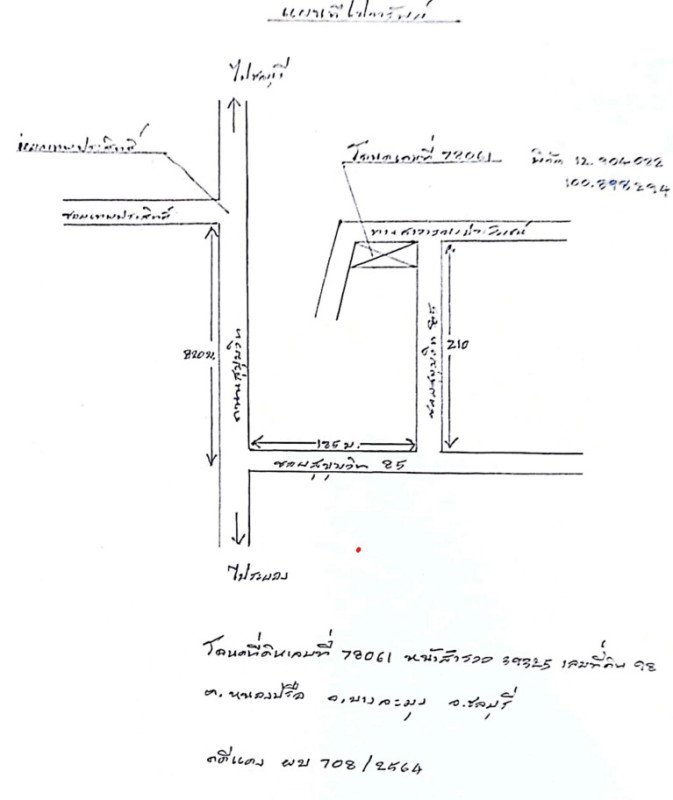 แผนที่ไปทรัพย์
ไปชลบุรี
แยกเทพประสิทธิ์
โฉนดเลขที่ 78061 พิกัด 12.904082
100.898294
ซอยเทพประสิทธิ์
ทางสาธารณประโยชน์
820 ม.
ถนนสุขุมวิท
ซอยสุขุมวิท 85
210
185 ม.
ซอยสุขุมวิท 85
ไประยอง
โฉนดที่ดินเลขที่ 78061 หน้าสำรวจ 39325 เลขที่ดิน 98
ต.หนองปรือ อ.บางละมุง จ.ชลบุรี
คดีแดง ผบ 708/2564